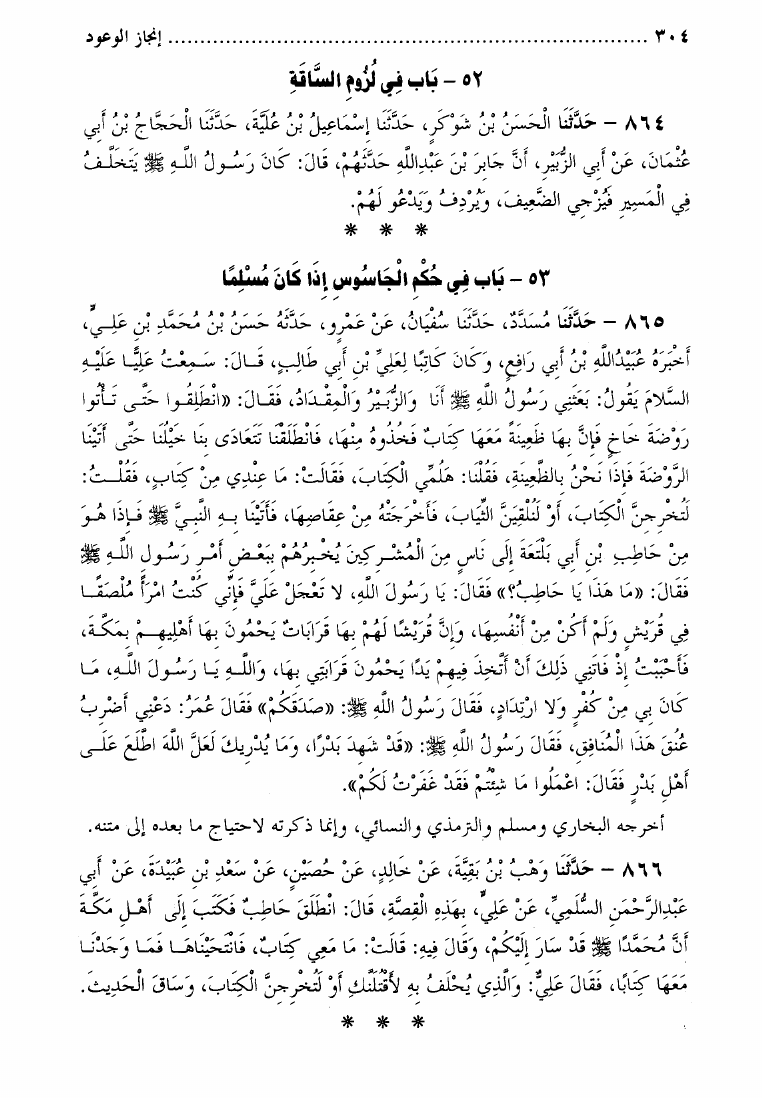 ٣٠٤ ........................................ إنجاز الوعود
٥٢ - بَاب فِي لُزُومِ السَّاقَةِ
٨٦٤ - حَدَّثَنَا الْحَسَنُ بْنُ شَوْكَرٍ، حَدَّثَنَا إِسْمَاعِيلُ بْنُ عُلَيَّةَ، حَدَّثَنَا الْحَجَّاجُ بْنُ أَبِي
عُثْمَانَ، عَنْ أَبِي الزُّبَيْرِ، أَنَّ جَابِرَ بْنَ عَبْدِاللَّهِ حَدَّثَهُمْ، قَالَ: كَانَ رَسُولُ اللَّهِ ﷺ يَتَخَلَّفُ
فِي الْمَسِيرِ فَيُزْجِي الضَّعِيفَ، وَيُرْدِفُ وَيَدْعُو لَهُمْ.
* * *
٥٣ - بَاب فِي حُكْمِ الْجَاسُوسِ إِذَا كَانَ مُسْلِمًا
٨٦٥ - حَدَّثَنَا مُسَدَّدٌ، حَدَّثَنَا سُفْيَانُ، عَنْ عَمْرٍو، حَدَّثَهُ حَسَنُ بْنُ مُحَمَّدِ بْنِ عَلِيٍّ،
أَخْبَرَهُ عُبَيْدُاللَّهِ بْنُ أَبِي رَافِعٍ، وَكَانَ كَاتِبًا لِعَلِيِّ بْنِ أَبِي طَالِبٍ، قَالَ: سَمِعْتُ عَلِيًّا عَلَيْهِ
السَّلَامَ يَقُولُ: بَعَثَنِي رَسُولُ اللَّهِ ﷺ أَنَا وَالزُّبَيْرُ وَالْمِقْدَادُ، فَقَالَ: «انْطَلِقُوا حَتَّى تَأْتُوا
رَوْضَةَ خَاخٍ فَإِنَّ بِهَا ظَعِينَةً مَعَهَا كِتَابٌ فَخُذُوهُ مِنْهَا، فَانْطَلَقْنَا تَتَعَادَى بِنَا خَيْلُنَا حَتَّى أَتَيْنَا
الرَّوْضَةَ فَإِذَا نَحْنُ بِالظَّعِينَةِ، فَقُلْنَا: هَلُمِّي الْكِتَابَ، فَقَالَتْ: مَا عِنْدِي مِنْ كِتَابٍ، فَقُلْتُ:
لَتُخْرِجِنَّ الْكِتَابَ، أَوْ لَنُلْقِيَنَّ الثِّيَابَ، فَأَخْرَجَتْهُ مِنْ عِقَاصِهَا، فَأَتَيْنَا بِهِ النَّبِيَّ ﷺ فَإِذَا هُوَ
مِنْ حَاطِبِ بْنِ أَبِي بَلْتَعَةَ إِلَى نَاسٍ مِنَ الْمُشْرِكِينَ يُخْبِرُهُمْ بِبَعْضِ أَمْرِ رَسُولِ اللَّهِ ﷺ
فَقَالَ: «مَا هَذَا يَا حَاطِبُ؟» فَقَالَ: يَا رَسُولَ اللَّهِ، لَا تَعْجَلْ عَلَيَّ فَإِنِّي كُنْتُ امْرَأً مُلْصَقًا
فِي قُرَيْشٍ وَلَمْ أَكُنْ مِنْ أَنْفُسِهَا، وَإِنَّ قُرَيْشًا لَهُمْ بِهَا قَرَابَاتٌ يَحْمُونَ بِهَا أَهْلِيهِمْ بِمَكَّةَ،
فَأَحْبَبْتُ إِذْ فَاتَنِي ذَلِكَ أَنْ أَتَّخِذَ فِيهِمْ يَدًا يَحْمُونَ قَرَابَتِي بِهَا، وَاللَّهِ يَا رَسُولَ اللَّهِ، مَا
كَانَ بِي مِنْ كُفْرٍ وَلَا ارْتِدَادٍ، فَقَالَ رَسُولُ اللَّهِ ﷺ: «صَدَقَكُمْ» فَقَالَ عُمَرُ: دَعْنِي أَضْرِبُ
عُنُقَ هَذَا الْمُنَافِقِ، فَقَالَ رَسُولُ اللَّهِ ﷺ: «قَدْ شَهِدَ بَدْرًا، وَمَا يُدْرِيكَ لَعَلَّ اللَّهَ اطَّلَعَ عَلَى
أَهْلِ بَدْرٍ فَقَالَ: اعْمَلُوا مَا شِئْتُمْ فَقَدْ غَفَرْتُ لَكُمْ».
أخرجه البخاري ومسلم والترمذي والنسائي، وإنما ذكرته لاحتياج ما بعده إلى متنه.
٨٦٦ - حَدَّثَنَا وَهْبُ بْنُ بَقِيَّةَ، عَنْ خَالِدٍ، عَنْ حُصَيْنٍ، عَنْ سَعْدِ بْنِ عُبَيْدَةَ، عَنْ أَبِي
عَبْدِالرَّحْمَنِ السُّلَمِيِّ، عَنْ عَلِيٍّ، بِهَذِهِ الْقِصَّةِ، قَالَ: انْطَلَقَ حَاطِبٌ فَكَتَبَ إِلَى أَهْلِ مَكَّةَ
أَنَّ مُحَمَّدًا ﷺ قَدْ سَارَ إِلَيْكُمْ، وَقَالَ فِيهِ: قَالَتْ: مَا مَعِي كِتَابٌ، فَانْتَحَيْنَاهَا فَمَا وَجَدْنَا
مَعَهَا كِتَابًا، فَقَالَ عَلِيٌّ: وَالَّذِي يُحْلَفُ بِهِ لَأَقْتُلَنَّكِ أَوْ لَتُخْرِجِنَّ الْكِتَابَ، وَسَاقَ الْحَدِيثَ.
* * *